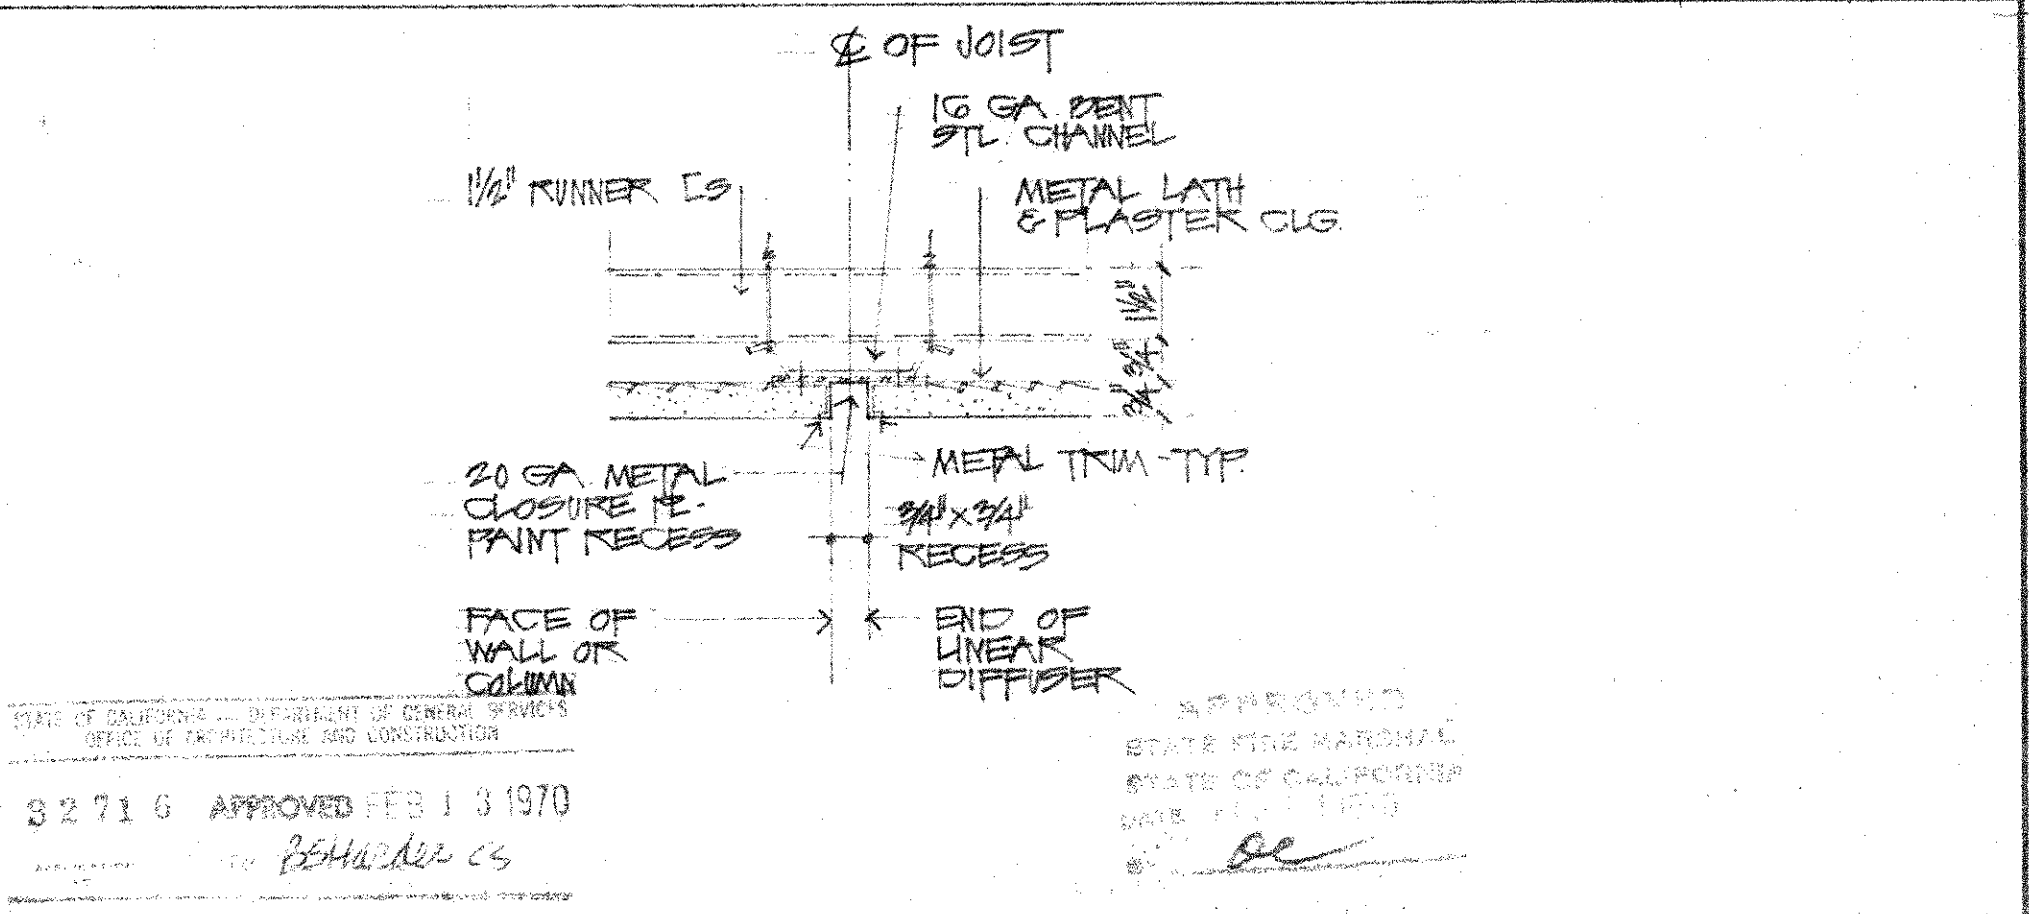 ℄ OF JOIST
16 GA. BENT
STL. CHANNEL
1½" RUNNER [S
METAL LATH
& PLASTER CLG.
1½"
¾"
¾"
20 GA. METAL
CLOSURE PL-
PAINT RECESS
METAL TRIM-TYP.
¾" X ¾"
RECESS
FACE OF
WALL OR
COLUMN
END OF
LINEAR
DIFFUSER
STATE OF CALIFORNIA — DEPARTMENT OF GENERAL SERVICES
OFFICE OF ARCHITECTURE AND CONSTRUCTION
32716 APPROVED FEB 13 1970
APPROVED
STATE FIRE MARSHAL
STATE OF CALIFORNIA
DATE